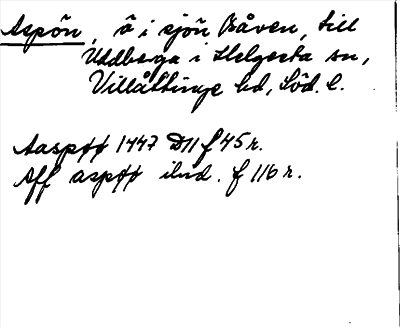 Aspön, ö i sjön Båven, till
Uddberga i Helgesta sn,
Villåttinge hd, Söd. l.
Aaspøø 1447 D11 f 45 r.
Aff aspøø ibid. f 116 r.